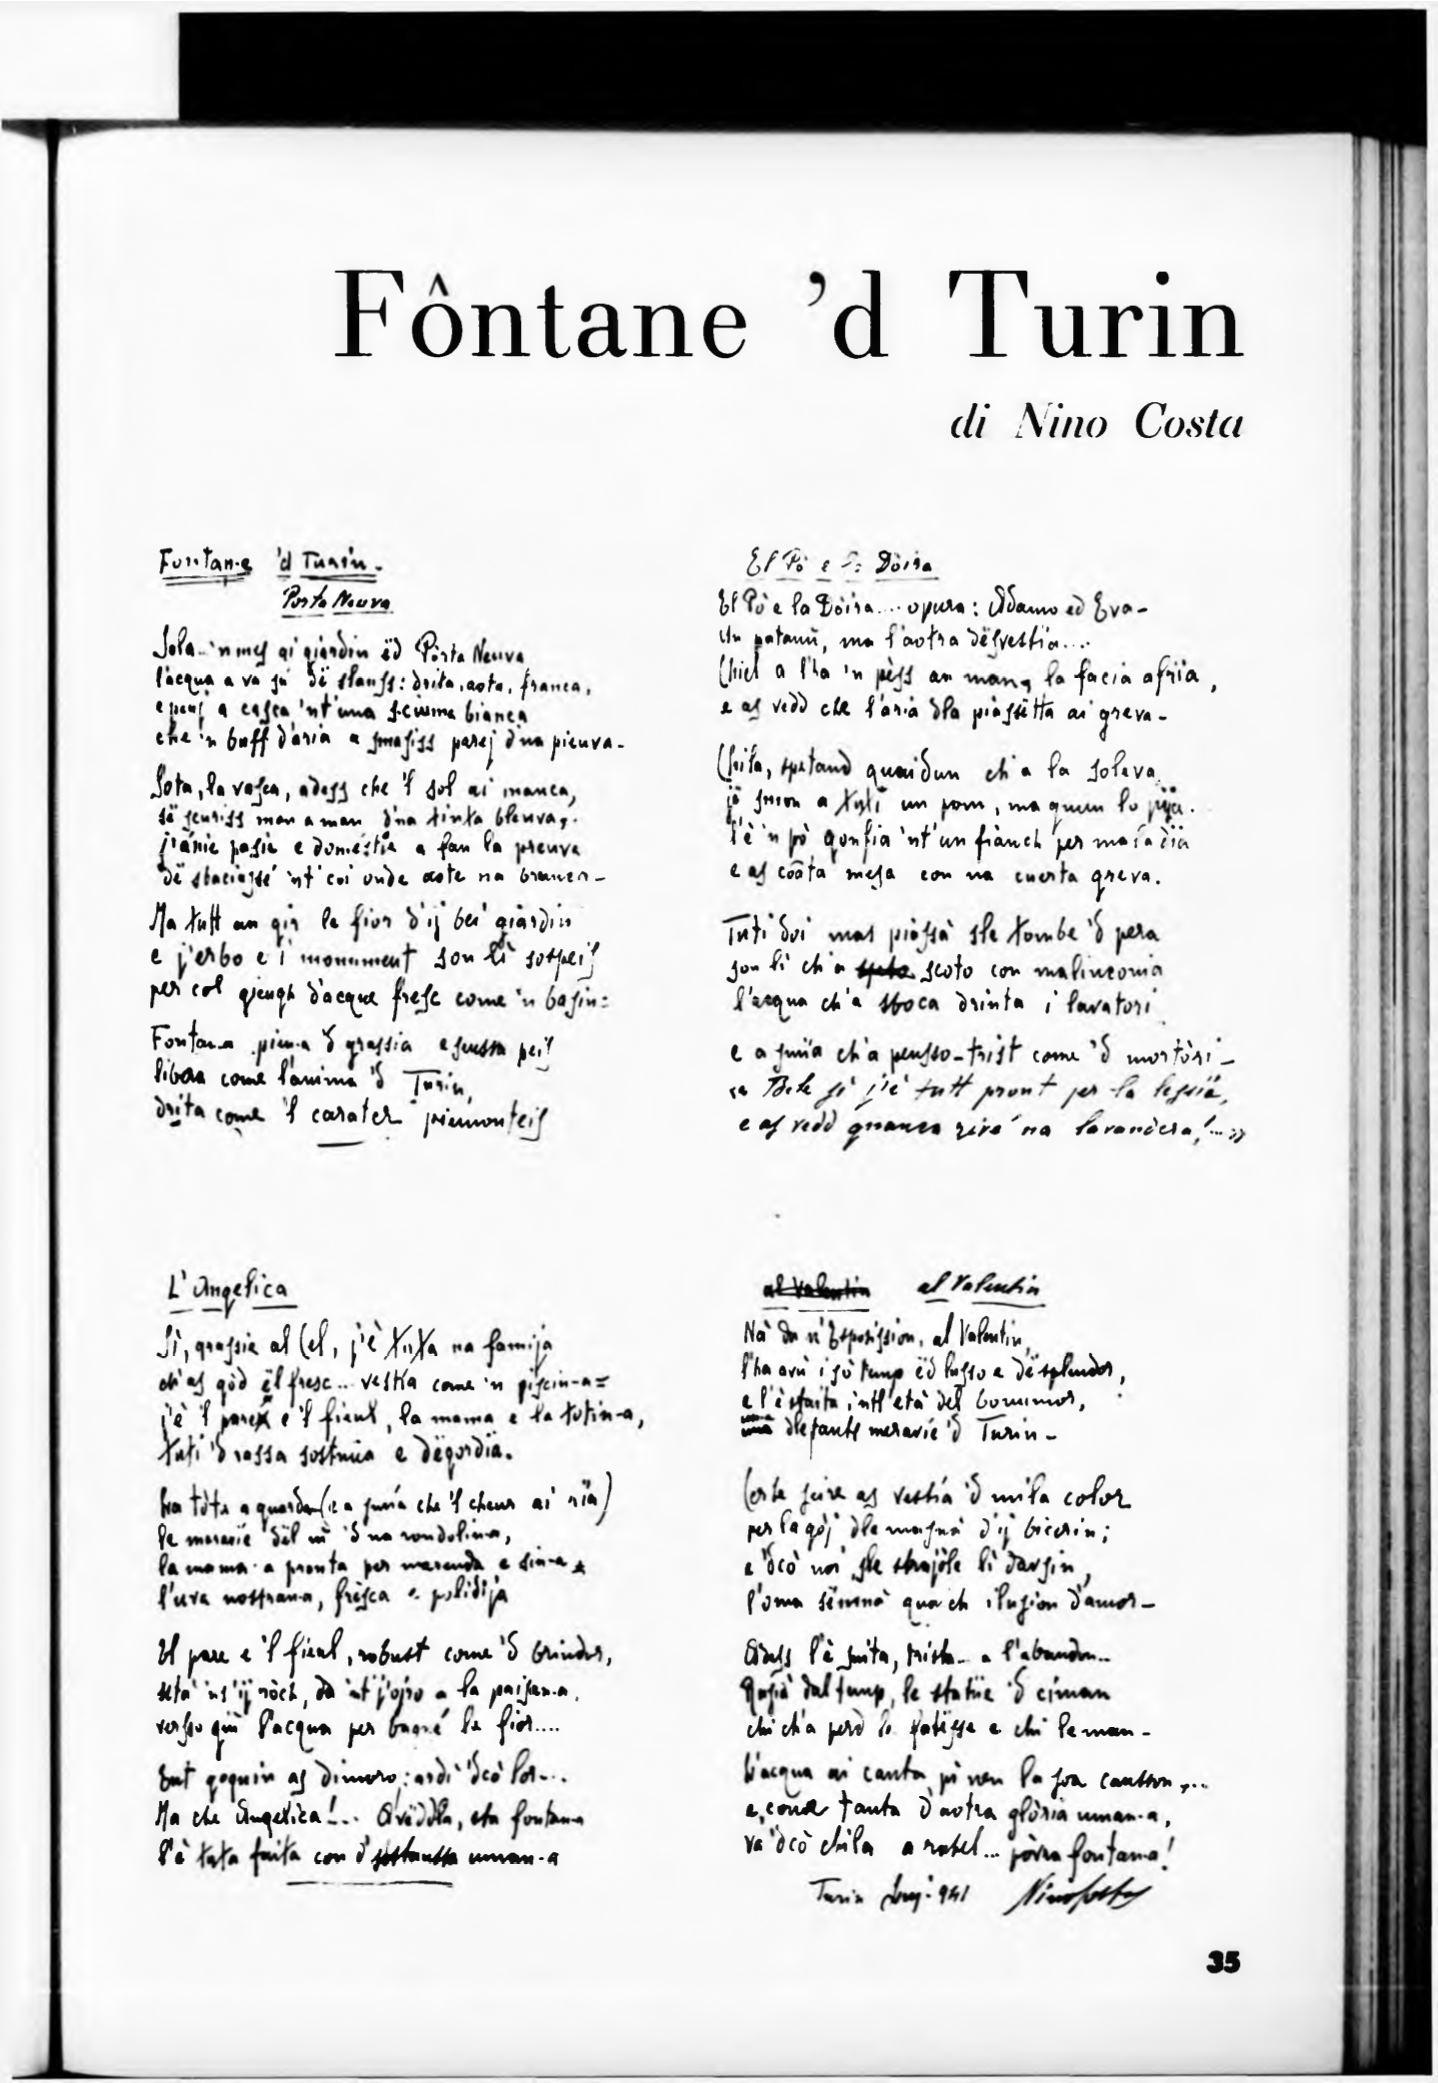 Fôntane 'd Turin
di Nino Costa
Fontan-e 'd Turin -
Porta Neuva
Sola.. 'n mes ai giardin ëd Pòrta Neuva
l'acqua a va su dë slanss: drita, aota, franca,
e peui a casca 'nt'una sciuma bianca
che 'n buff d'aria a smasiss parej d'na pieuva -
Sota, la vasca, adess che 'l sol ai manca,
së scuriss man a man d'na tinta bleuva,
e doméstie a fan la preuva
dë sbaciassé 'nt' coi onde aote na branca -
Ma tutt an gir le fior d'ij bei giardin
e j'erbo e i monument son lì sospeis
per col gieugh d'acque fresc come 'n basin:
Fontan-a pien-a 'd grassia e sensa peis
libera come l'anima 'd Turin,
drita come 'l carater piemonteis
El Pò e la Dòira
El Pò e la Dòira.... opura: Adamo ed Eva -
Un patanù, ma l'aotra dësvestìa....
Chiel a l'ha 'n pèss an man, la facia afrìa,
e as vedd che l'aria dla piassëtta ai greva -
Chila, spetand quaidun ch'a la soleva,
jë smon a tuti un pom, ma gnun lo pija.
L'è 'n pò gonfia 'nt'un fianch per malatìa
e as coata mesa con na cuerta greva.
Tuti doi mas piassà sle tombe 'd pera
son lì ch'a scoto con malinconia
l'acqua ch'a sboca drinta i lavatori
e a smïa ch'a pensso - trist come 'd mortòri -
« Bele sì j'è tutt pront per la lessìa,
e as vedd gnanca rivé na lavandera!... »
L'Angelica
Sì, grassie al Cel, j'è tuta na famija
ch'as gòd ël fresc... vestìa come 'n piscin-a =
j'è 'l pare e 'l fieul, la mama e la totin-a,
tuti 'd rassa sostnùa e dëgordìa.
La tòta a guarda (e a smïa che 'l cheur ai rìa)
le meravie dël nì 'd na rondolin-a,
la mama a pronta per marenda e sin-a
l'uva nostran-a, frësca e polidija
El pare e 'l fieul, robust come 'd brindor,
setà 'ns'ij ròch, da 'nt j'ojro a la paisan-a
versso giù l'acqua per bagné le fior....
Sut goguin as dimoro; ardì 'dcò lor...
Ma che Angelica!... Avëddla, sta fontan-a
l'è tuta faita con d' sostanssa uman-a
al Valentin al Valentin
Nà da n'Esposission, al Valentin,
l'ha avù i sò temp ëd lusso e dë splendor,
e l'è staita, intl'età del bonumor,
una dle tante meravie 'd Turin -
Certe seire as vestìa 'd mila color
per la gòj dle masnà d'ij bicerin;
e 'dcò noi sle strajòle lì davsin,
l'oma sëmnà quaich ilusion d'amor -
Adess l'è finita, trista.. a l'abandon..
Rusià dal temp, le statüe 'd ciman
chi ch'a perd le fatësse e chi le man -
L'acqua ai canta pi nen la soa canson,...
e, come tanta d'aotra glòria uman-a,
va 'dcò chila a rabel... pòvra fontan-a!
Turin 941 Nino Costa
35